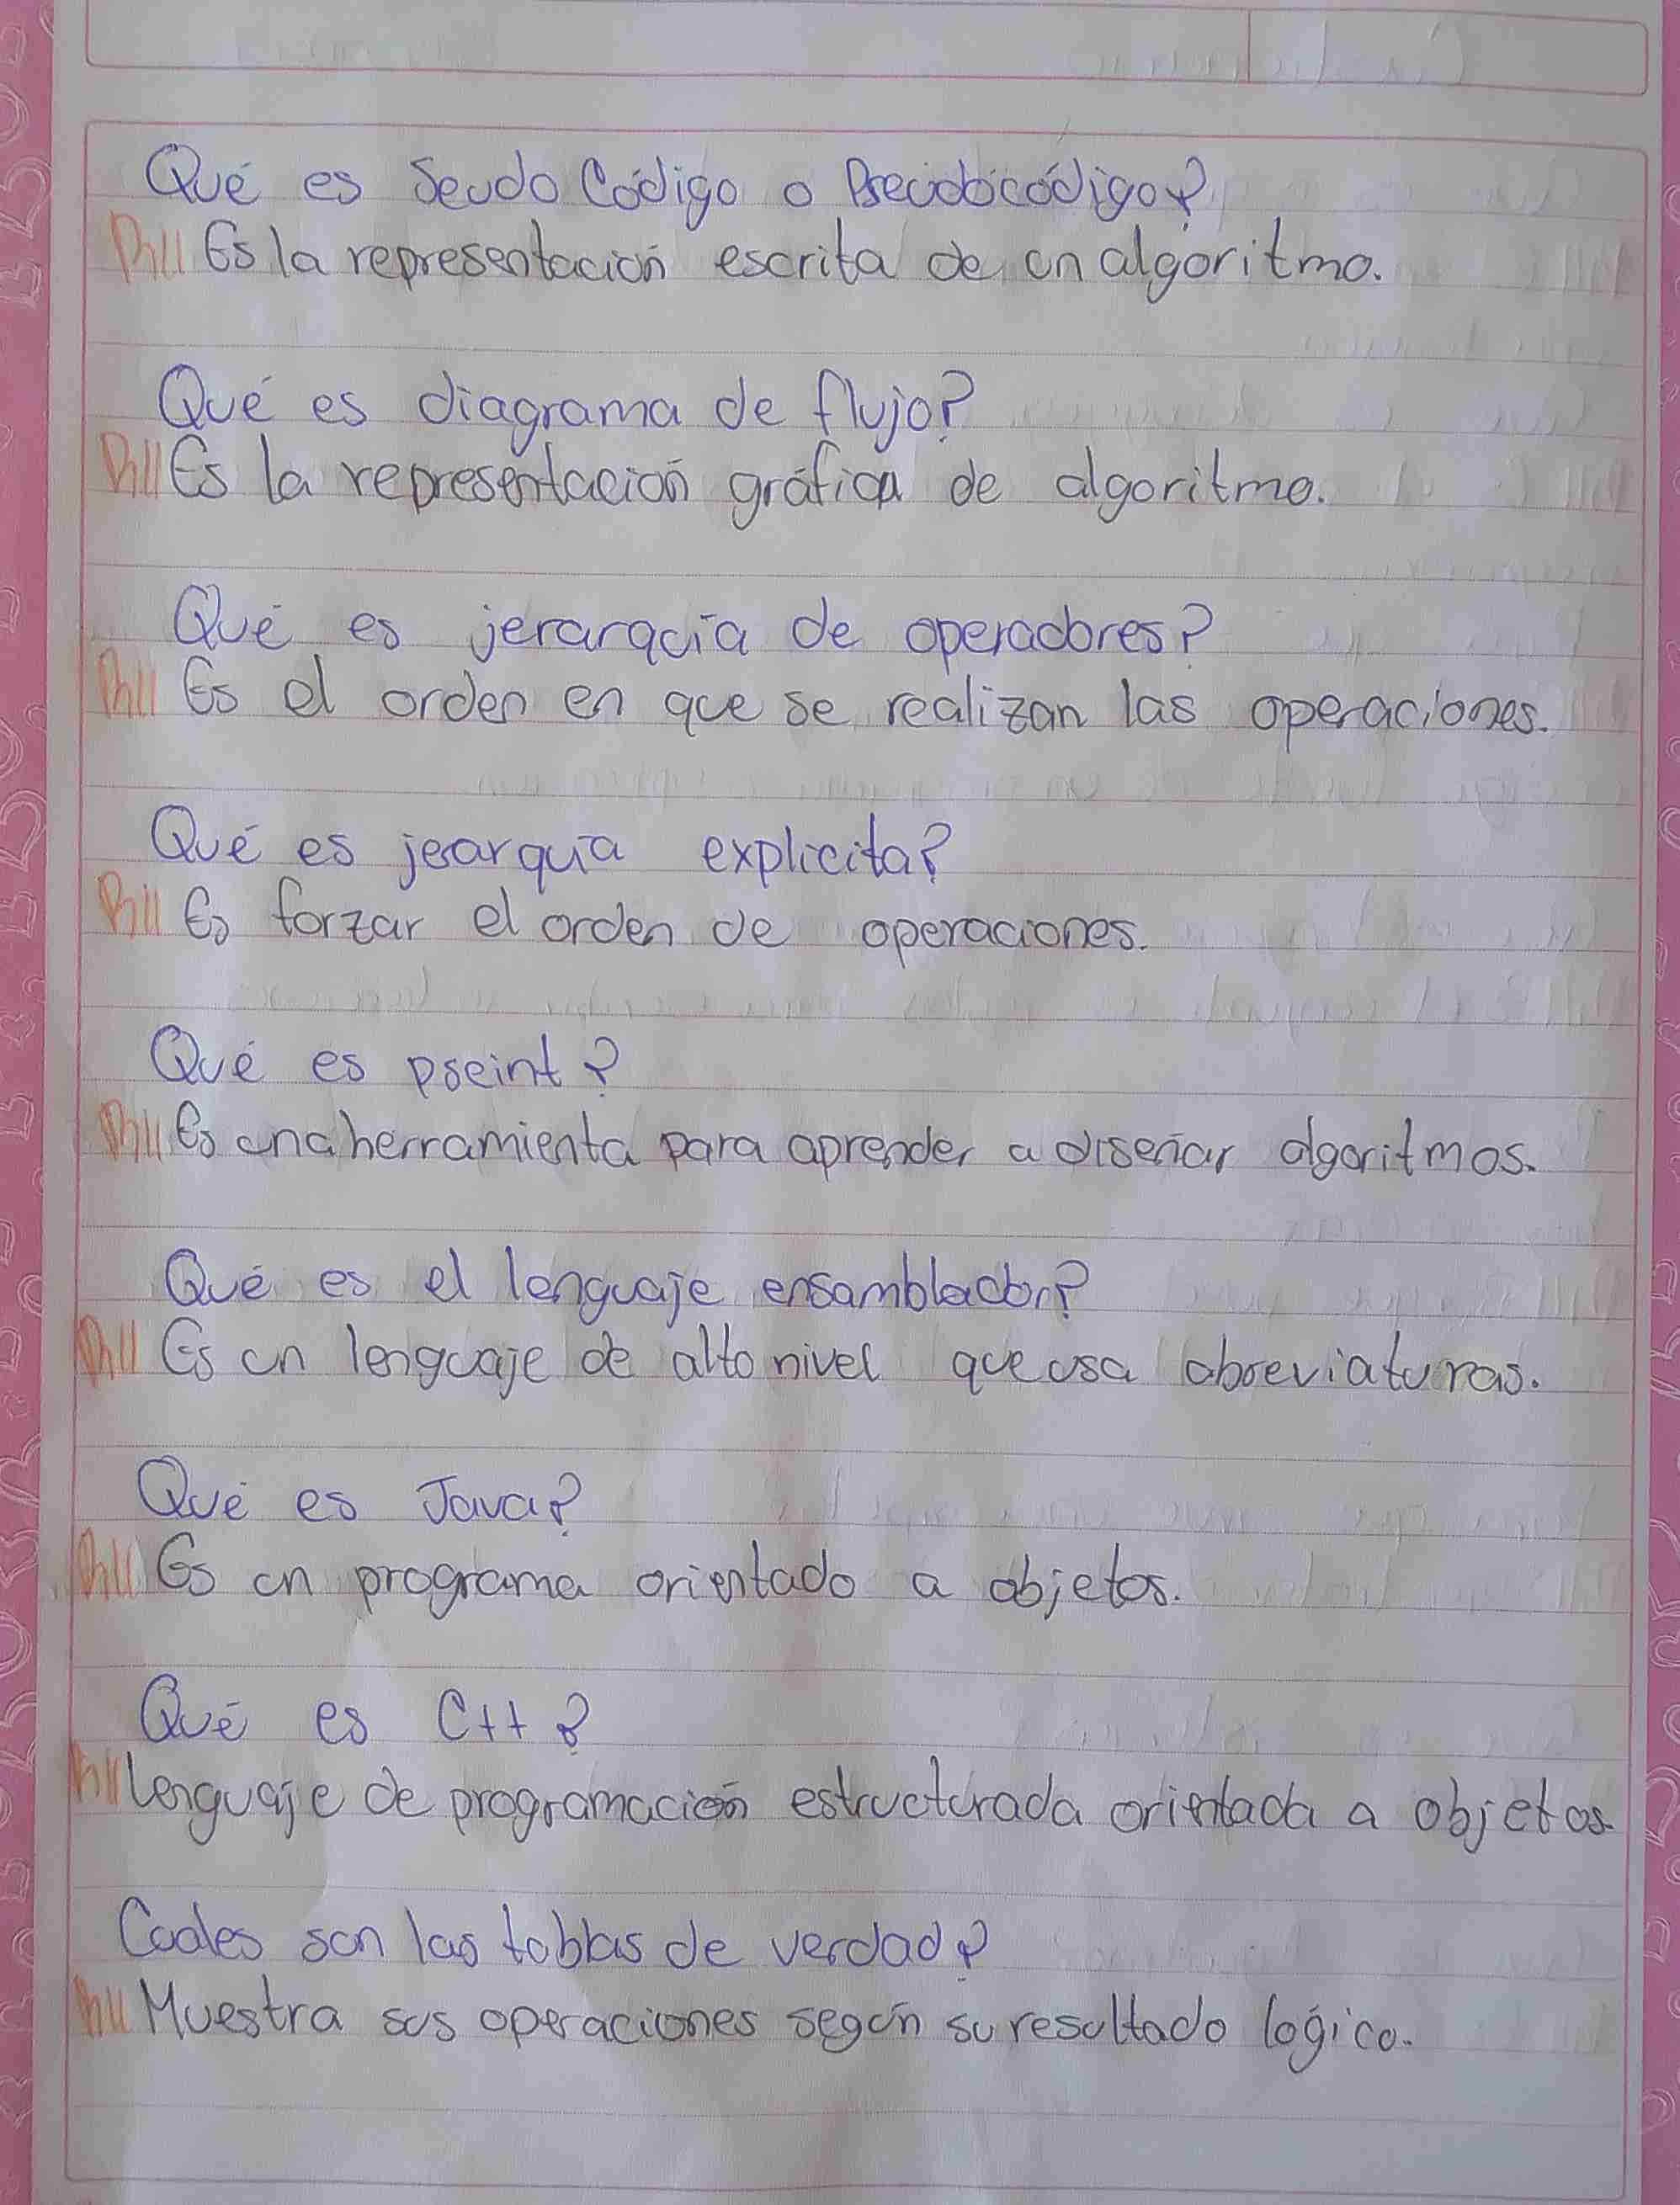 Qué es Seudo Código o Pseudocódigo?
R// Es la representación escrita de un algoritmo.
Qué es diagrama de flujo?
R// Es la representación gráfica de algoritmo.
Qué es jerarquía de operadores?
R// Es el orden en que se realizan las operaciones.
Qué es jerarquía explicita?
R// Es forzar el orden de operaciones.
Qué es pseint?
R// Es una herramienta para aprender a diseñar algoritmos.
Qué es el lenguaje ensamblador?
R// Es un lenguaje de alto nivel que usa abreviaturas.
Qué es Java?
R// Es un programa orientado a objetos.
Qué es C++?
R// Lenguaje de programación estructurada orientada a objetos.
Cuales son las tablas de verdad?
R// Muestra sus operaciones según su resultado lógico.